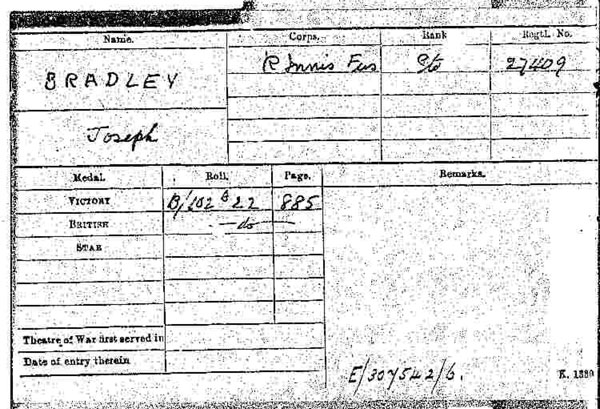 Name. Corps. Rank Regtl. No.
BRADLEY R Innis Fus Pte 27409
Joseph
Medal. Roll. Page. Remarks.
VICTORY B/102 B 22 885
BRITISH — do —
STAR
Theatre of War first served in
Date of entry therein
E/307542/6. K. 1380